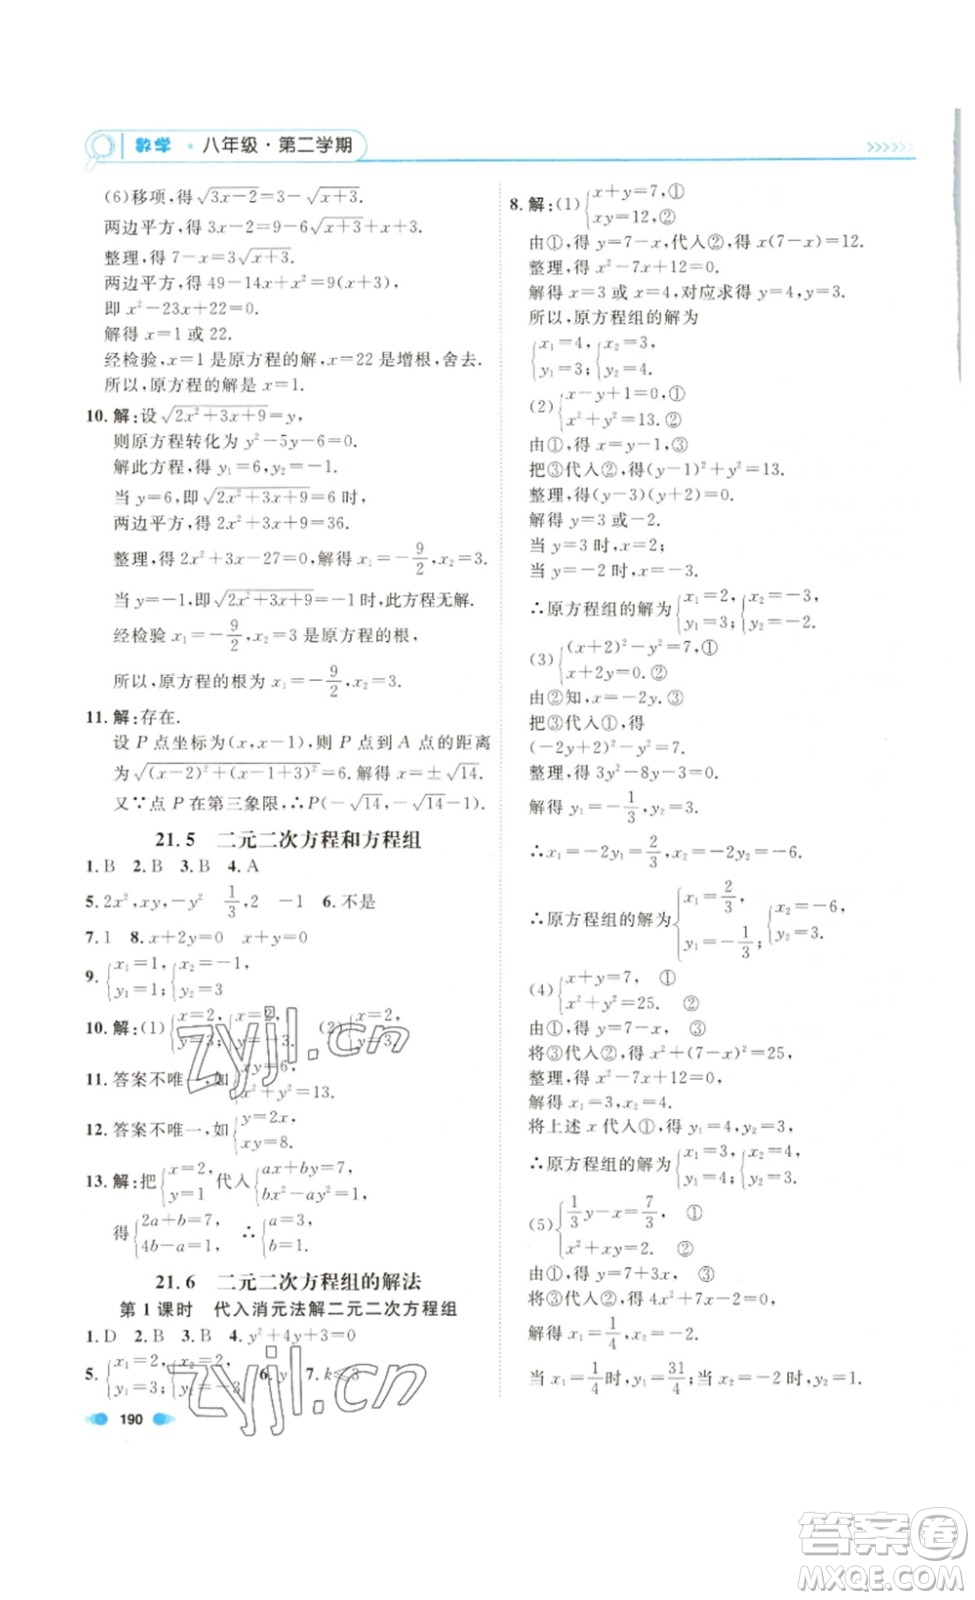 数学 · 八年级·第二学期
(6)移项,得√(3x-2)=3-√(x+3).
两边平方,得 3x-2=9-6√(x+3)+x+3.
整理,得 7-x=3√(x+3).
两边平方,得 49-14x+x²=9(x+3),
即 x²-23x+22=0.
解得 x=1或 22.
经检验,x=1是原方程的解,x=22 是增根,舍去.
所以,原方程的解是 x=1.
10. 解:设√(2x²+3x+9)=y,
则原方程转化为 y²-5y-6=0.
解此方程,得 y₁=6,y₂=-1.
当 y=6,即√(2x²+3x+9)=6 时,
两边平方,得 2x²+3x+9=36.
整理,得 2x²+3x-27=0,解得 x₁=-9/2,x₂=3.
当 y=-1,即√(2x²+3x+9)=-1时,此方程无解.
经检验 x₁=-9/2,x₂=3 是原方程的根,
所以,原方程的根为 x₁=-9/2,x₂=3.
11. 解:存在.
设 P 点坐标为(x,x-1),则 P 点到 A 点的距离
为√((x-2)²+(x-1+3)²)=6.解得 x=±√14.
又∵点 P 在第三象限,∴P(-√14,-√14-1).
21.5 二元二次方程和方程组
1. B 2. B 3. B 4. A
5. 2x²,xy,-y² 1/3,2 -1 6. 不是
7. 1 8. x+2y=0 x+y=0
9. {x₁=1, y₁=1; {x₂=-1, y₂=3
10. 解:(1){x=2, y=3; {x=2, y=-3. (2){x=2, y=3.
11. 答案不唯一,如{x=6, x²=13.
12. 答案不唯一,如{y=2x, xy=8.
13. 解:把{x=2, y=1 代入{ax+by=7, bx²-ay²=1,
得{2a+b=7, 4b-a=1, ∴{a=3, b=1.
21.6 二元二次方程组的解法
第 1 课时 代入消元法解二元二次方程组
1. D 2. B 3. B 4. y²+4y+3=0
5. {x₁=2, y₁=3; {x₂=-2, y₂=-3 6. y 7. k≤3
190
8. 解:(1){x+y=7,① xy=12,②
由①,得 y=7-x,代入②,得 x(7-x)=12.
整理,得 x²-7x+12=0.
解得 x=3 或 x=4,对应求得 y=4,y=3.
所以,原方程组的解为
{x₁=4, y₁=3; {x₂=3, y₂=4.
(2){x-y+1=0,① x²+y²=13.②
由①,得 x=y-1,③
把③代入②,得(y-1)²+y²=13.
整理,得(y-3)(y+2)=0.
解得 y=3 或-2.
当 y=3 时,x=2;
当 y=-2 时,x=-3.
∴原方程组的解为{x₁=2, y₁=3; {x₂=-3, y₂=-2.
(3){(x+2)²-y²=7,① x+2y=0.②
由②知,x=-2y.③
把③代入①,得
(-2y+2)²-y²=7.
整理,得 3y²-8y-3=0.
解得 y₁=-1/3,y₂=3.
∴x₁=-2y₁=2/3,x₂=-2y₂=-6.
∴原方程组的解为{x₁=2/3, y₁=-1/3; {x₂=-6, y₂=3.
(4){x+y=7, ① x²+y²=25. ②
由①,得 y=7-x, ③
将③代入②,得 x²+(7-x)²=25,
整理,得 x²-7x+12=0,
解得 x₁=3,x₂=4.
将上述 x 代入①,得 y₁=4,y₂=3,
∴原方程组的解为{x₁=3, y₁=4; {x₂=4, y₂=3.
(5){1/3y-x=7/3, ① x²+xy=2. ②
由①,得 y=7+3x, ③
将③代入②,得 4x²+7x-2=0,
解得 x₁=1/4,x₂=-2.
当 x₁=1/4时,y₁=31/4;当 x₂=-2 时,y₂=1.
zyjl.cn
zyjl.cn
答案卷
MXQE.COM